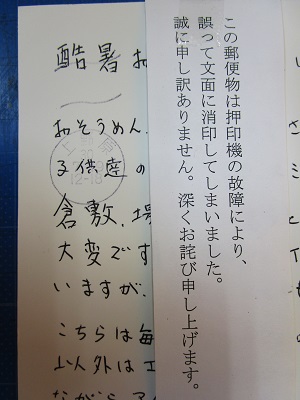 この郵便物は押印機の故障により、
誤って文面に消印してしまいました。
誠に申し訳ありません。深くお詫び申し上げます。
酷暑お
おそうめん、
る供産の
倉敷、場
大変です
いますが、
こちらは毎
以外はエ
ながらア